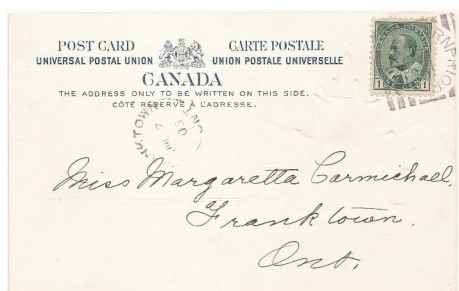 POST CARD CARTE POSTALE
UNIVERSAL POSTAL UNION UNION POSTALE UNIVERSELLE
CANADA
THE ADDRESS ONLY TO BE WRITTEN ON THIS SIDE.
CÔTÉ RÉSERVÉ À L'ADRESSE.
CANADA POSTAGE
1 1
ARNPRIOR
Miss Margaretta Carmichael,
Franktown.
Ont.